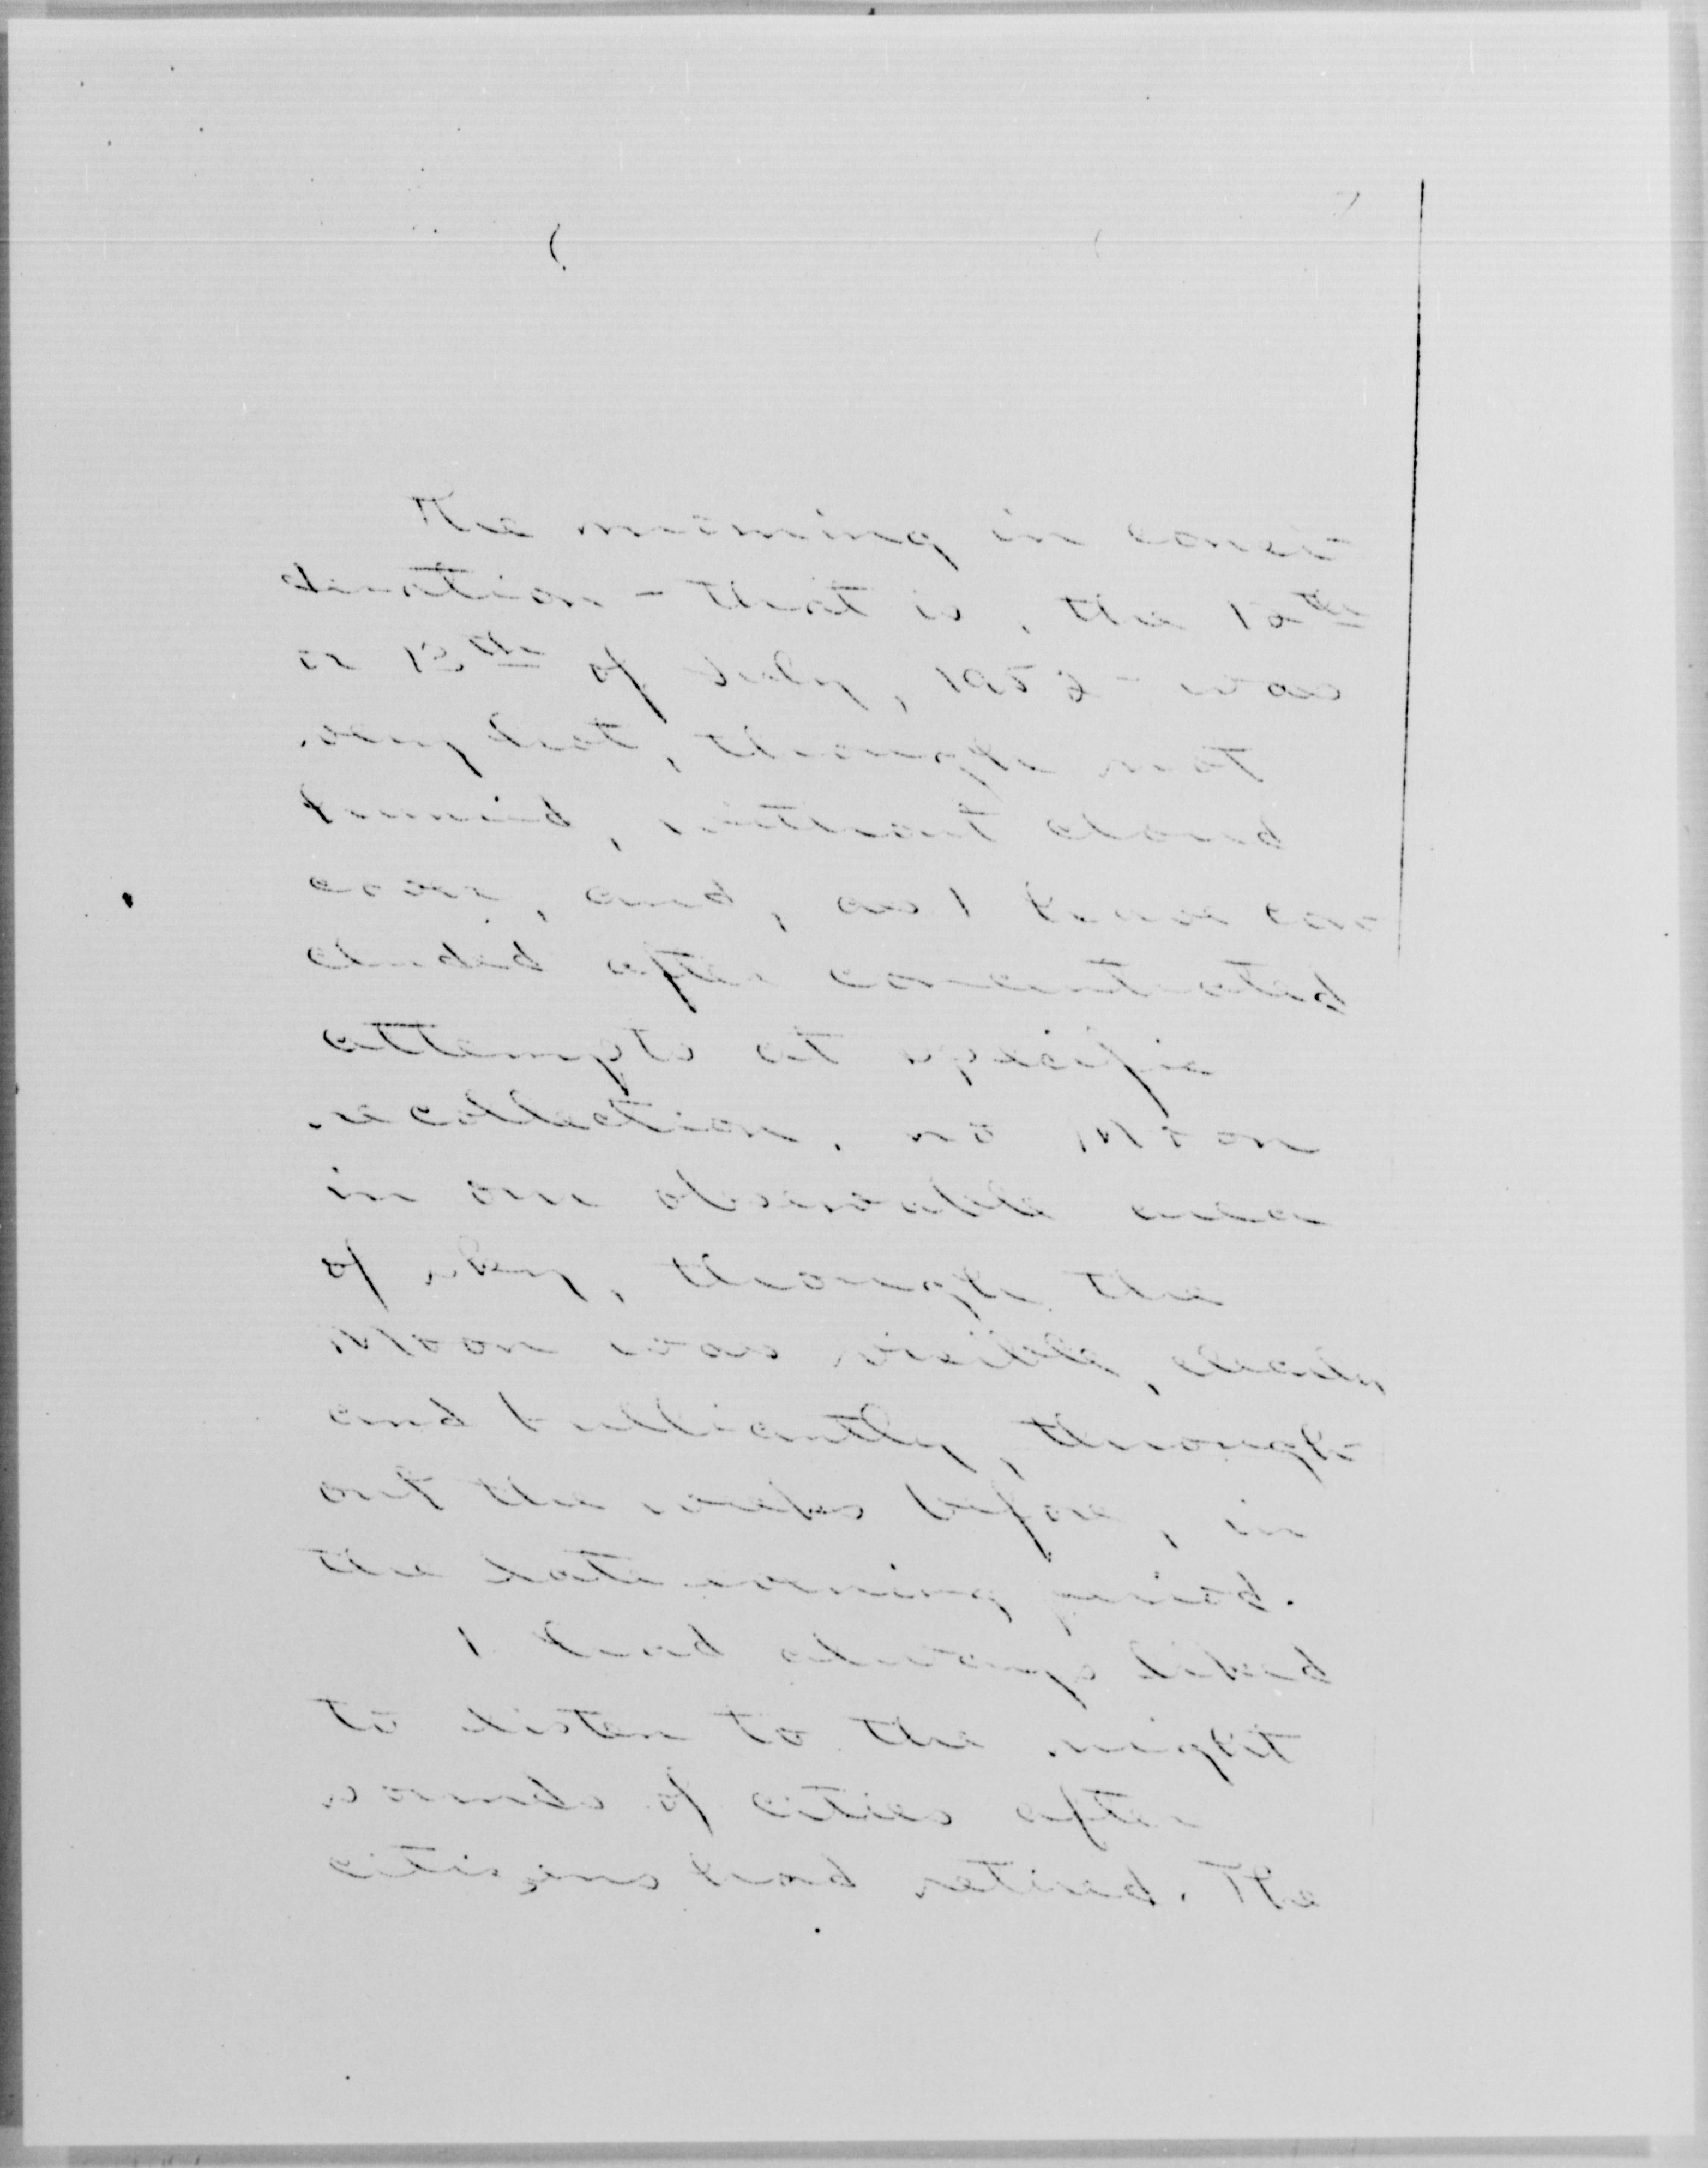 The morning in consi-
deration - that is, the 12th
or 13th of July, 1956 - was
very hot, though not
humid, without cloud
cover, and, as I have con-
cluded after concentrated
attempts at specific
recollection, no Moon
in our observable area
of sky, though the
Moon was visible, clearly
and brilliantly, through-
out the weeks before, in
the late evening period.
I had always liked
to listen to the night
sounds of cities after
citizens had retired. The